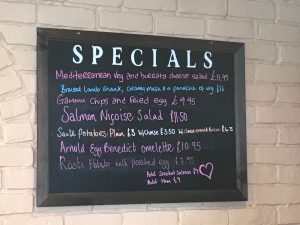 SPECIALS
Mediterranean Veg and burrata cheese salad £11.95
Braised Lamb Shank, Creamy Mash & a panache of veg £16
Gammon Chips and fried egg £9.95
Salmon Niçoise Salad £11.50
Sauté Potatoes: Plain £3 W/Cheese £3.50 W/Cheese and Bacon £4.75
Arnold Egg Benedict omelette £10.95
Rosti Potato with poached egg £7.95
Add Smoked Salmon £4
Add Ham £3